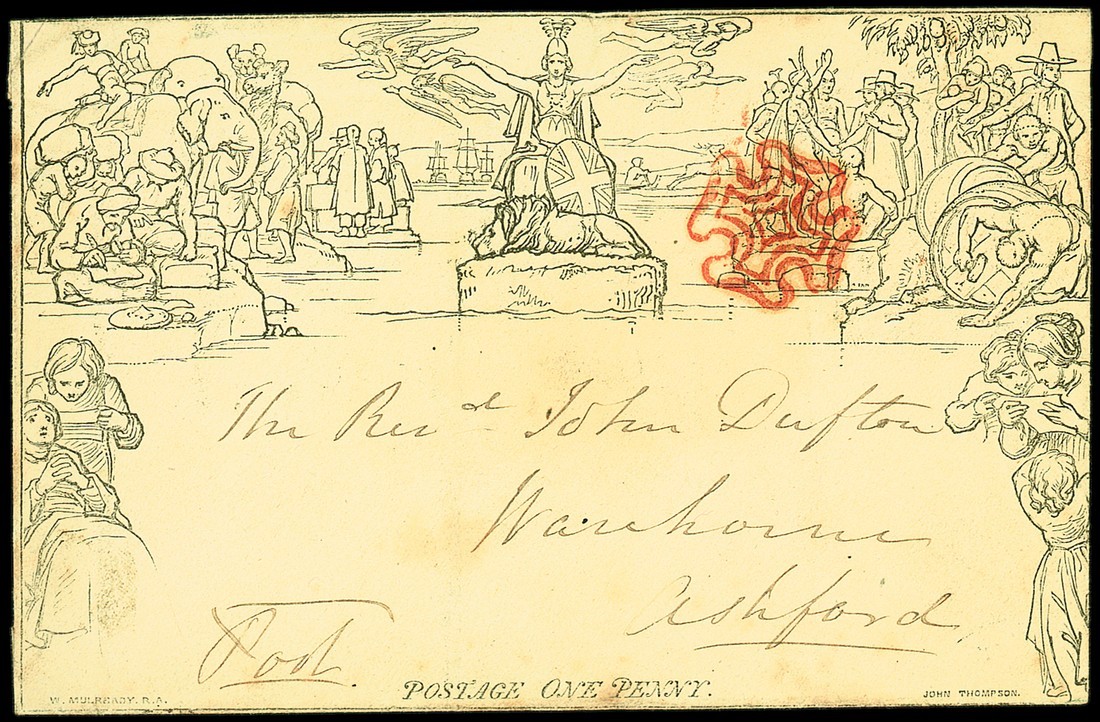 The Revd John Dufton
Warehorne
Ashford
Post
POSTAGE ONE PENNY.
W. MULREADY. R.A.
JOHN THOMPSON.